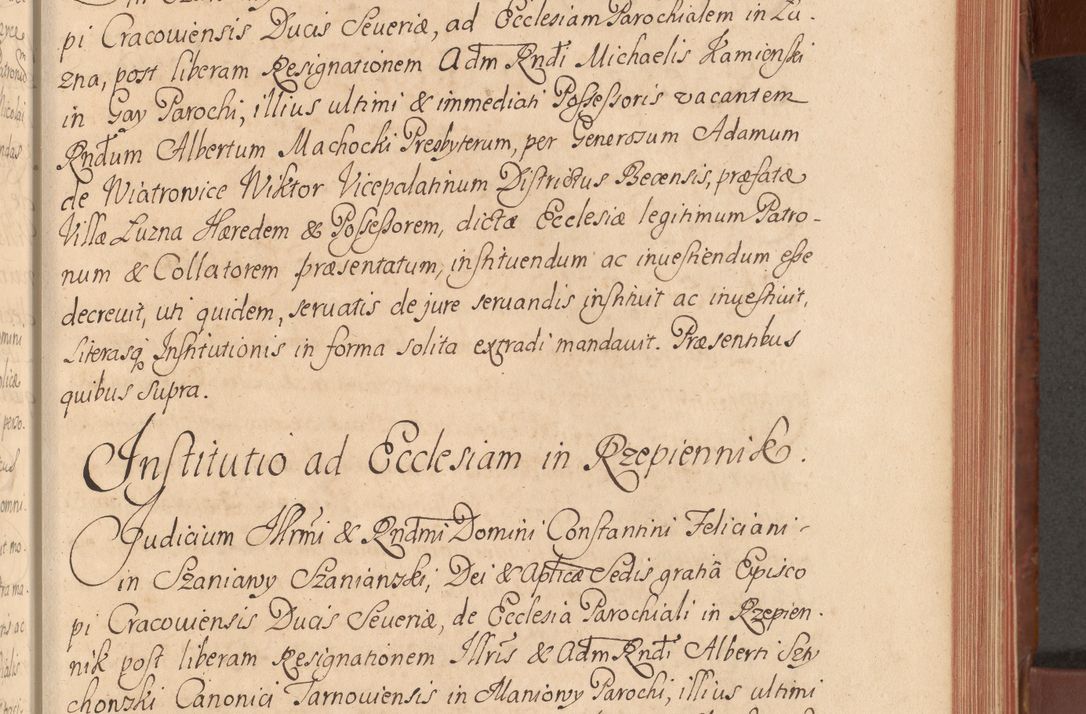 pi Cracoviensis Ducis Severiæ, ad Ecclesiam Parochialem in Lu-
zna, post liberam Resignationem Adm Rndi Michaelis Kamienski
in Gay Parochi, illius ultimi & immediati Possessoris vacantem
Rndum Albertum Machocki Presbyterum, per Generosum Adamum
de Wiatrowice Wiktor Vicepalatinum Districtus Becensis, præfatæ
Villæ Luzna Hæredem & Possessorem, dictæ Ecclesiæ legitimum Patro-
num & Collatorem præsentatum, instituendum ac investiendum esse
decrevit, uti quidem, servatis de jure servandis instituit ac investivit,
Literasq Institutionis in forma solita extradi mandavit. Præsentibus
quibus supra.
Institutio ad Ecclesiam in Rzepiennik.
Judicium Illrmi & Rndmi Domini Constantini Feliciani
in Szaniawy Szaniawski, Dei & Apticæ Sedis gratia Episco
pi Cracoviensis Ducis Severiæ, de Ecclesia Parochiali in Rzepien-
nik post liberam Resignationem Illris & Adm Rndi Alberti
Canonici Tarnoviensis in Maniowy Parochi, illius ultimi